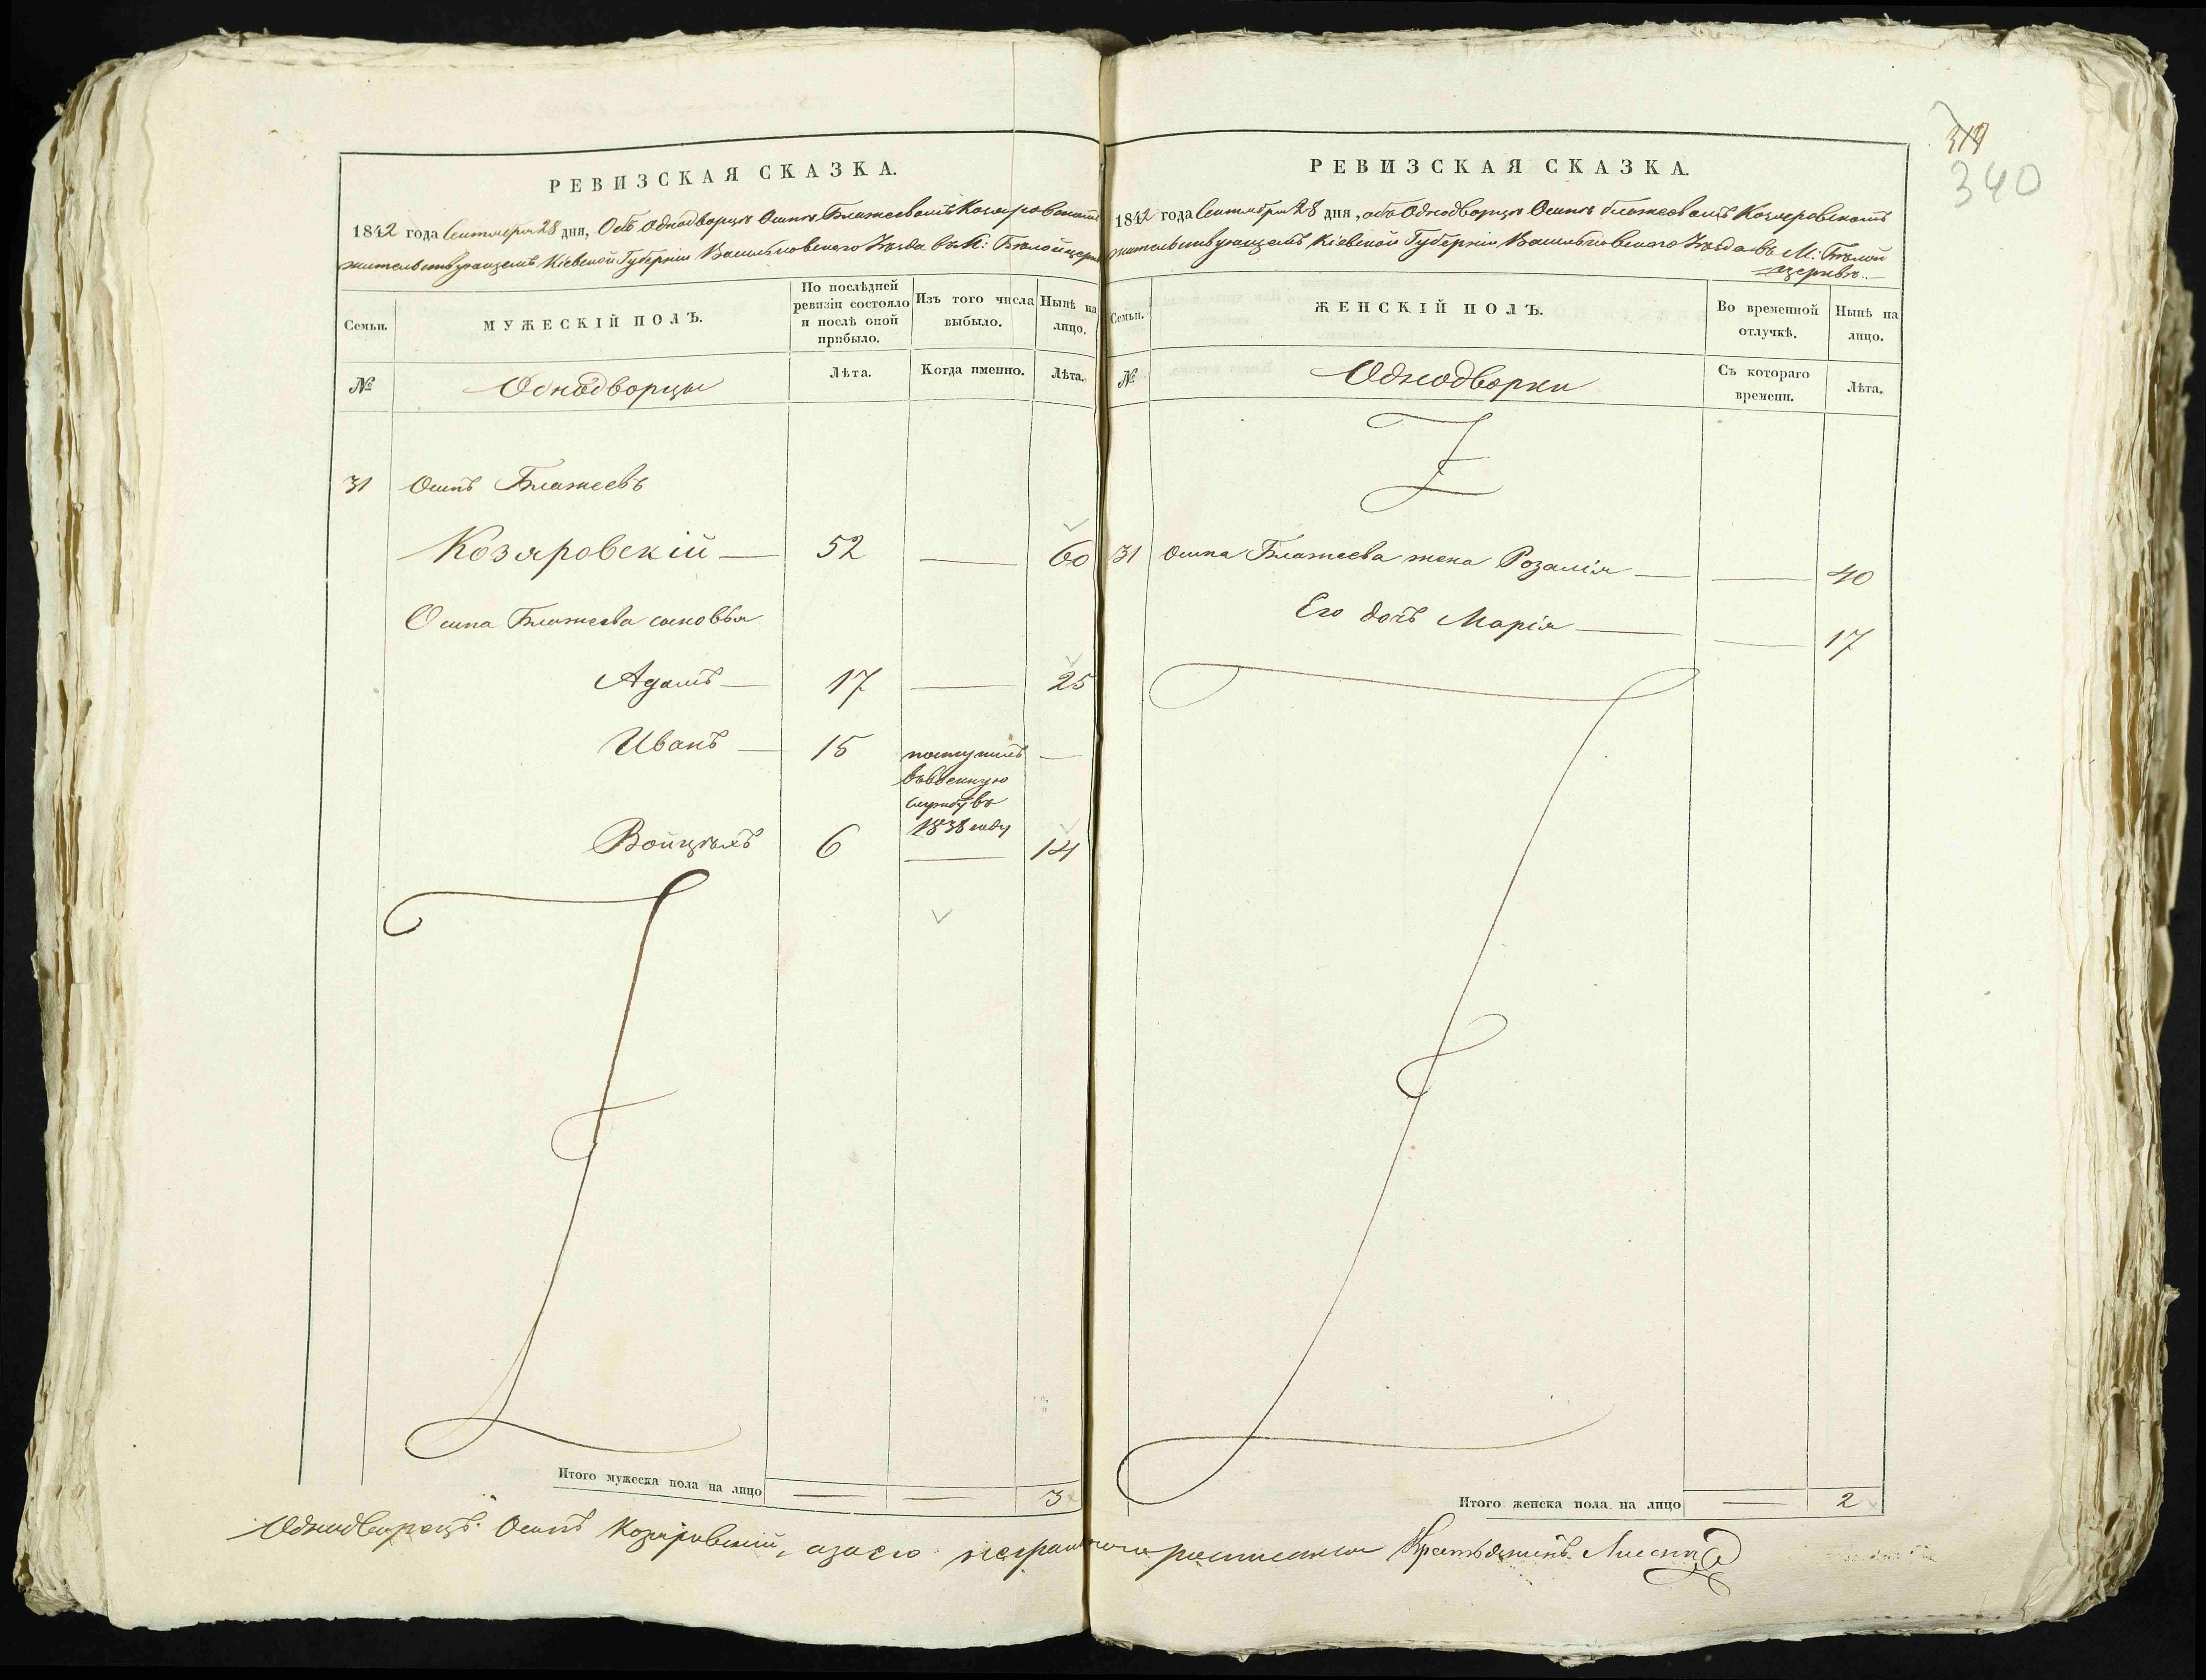 РЕВИЗСКАЯ СКАЗКА.
1842 года Сентября 28 дня, Объ Однодворцѣ Осипѣ Блажеевомъ Козяровскомъ
жительствующемъ Кіевской Губерніи Васильковскаго Уѣзда въ М: Бѣлойцерк
Семьи.
МУЖЕСКІЙ ПОЛЪ.
По послѣдней ревизіи состояло и послѣ оной прибыло.
Изъ того числа выбыло.
Нынѣ на лицо.
№
Однодворцы
Лѣта.
Когда именно.
Лѣта.
31 Осипъ Блажеевъ
Козяровскій — 52 — 60
Осипа Блажеева сыновья
Адамъ — 17 — 25
Иванъ — 15 поступилъ —
въ военную
службу въ
1838 году
Войцѣхъ 6 — 14
Итого мужеска пола на лицо — — 3
317
340
РЕВИЗСКАЯ СКАЗКА.
1842 года Сентября 28 дня, объ Однодворцѣ Осипѣ Блажеевомъ Козяровскомъ
жительствующемъ Кіевской Губерніи Васильковскаго Уѣзда въ М: Бѣлой
церквѣ.
Семьи.
ЖЕНСКІЙ ПОЛЪ.
Во временной отлучкѣ.
Нынѣ на лицо.
№
Однодворки
Съ котораго времени.
Лѣта.
31 Осипа Блажеева жена Розалія — — 40
Его дочь Марія — — 17
Итого женска пола на лицо — 2
Однодворецъ Осипъ Козяровскій, а за его неграмотного росписался